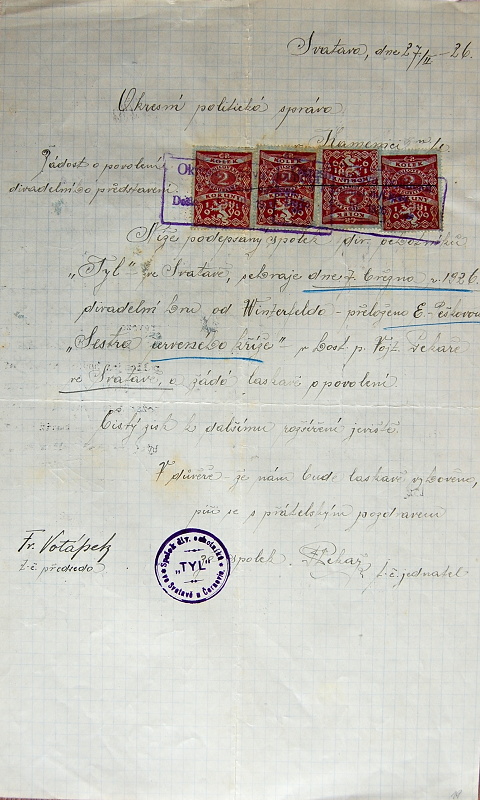 Svatava, dne 27/II - 26.
Okresní politická správa
v Kamenici n/L.
Žádost o povolení
divadelního představení.
KOLEK KOLEK KOLEK KOLEK
2 2 2 2
KORUNY KORUNY
1920 1920
Níže podepsaný spolek div. ochotníků
„Tyl" ve Svatavě, sehraje dne 7. března v. 1926.
divadelní hru od Winterfelda - přeloženo E. Peškovou
„Sestra červeného kříže" v host. p. Vojt. Pekaře
ve Svatavě, a žádá laskavě o povolení.
Čistý zisk k dalšímu rozšíření jeviště.
V důvěře - že nám bude laskavě vyhověno,
píší se s přátelským pozdravem
spolek.
Fr. Votápek
t. č. předseda
Spolek div. ochotníků
„TYL"
ve Svatavě u Černovic
Pekař
t. č. jednatel